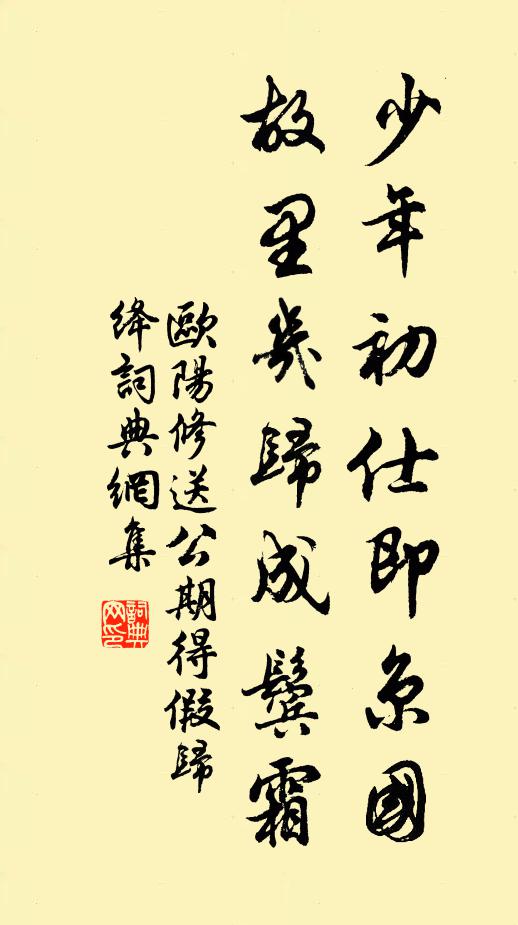 少年初仕即京國
故里幾歸成鬢霜
歐陽修送公期得假歸
絳詞典網集
詞典网印